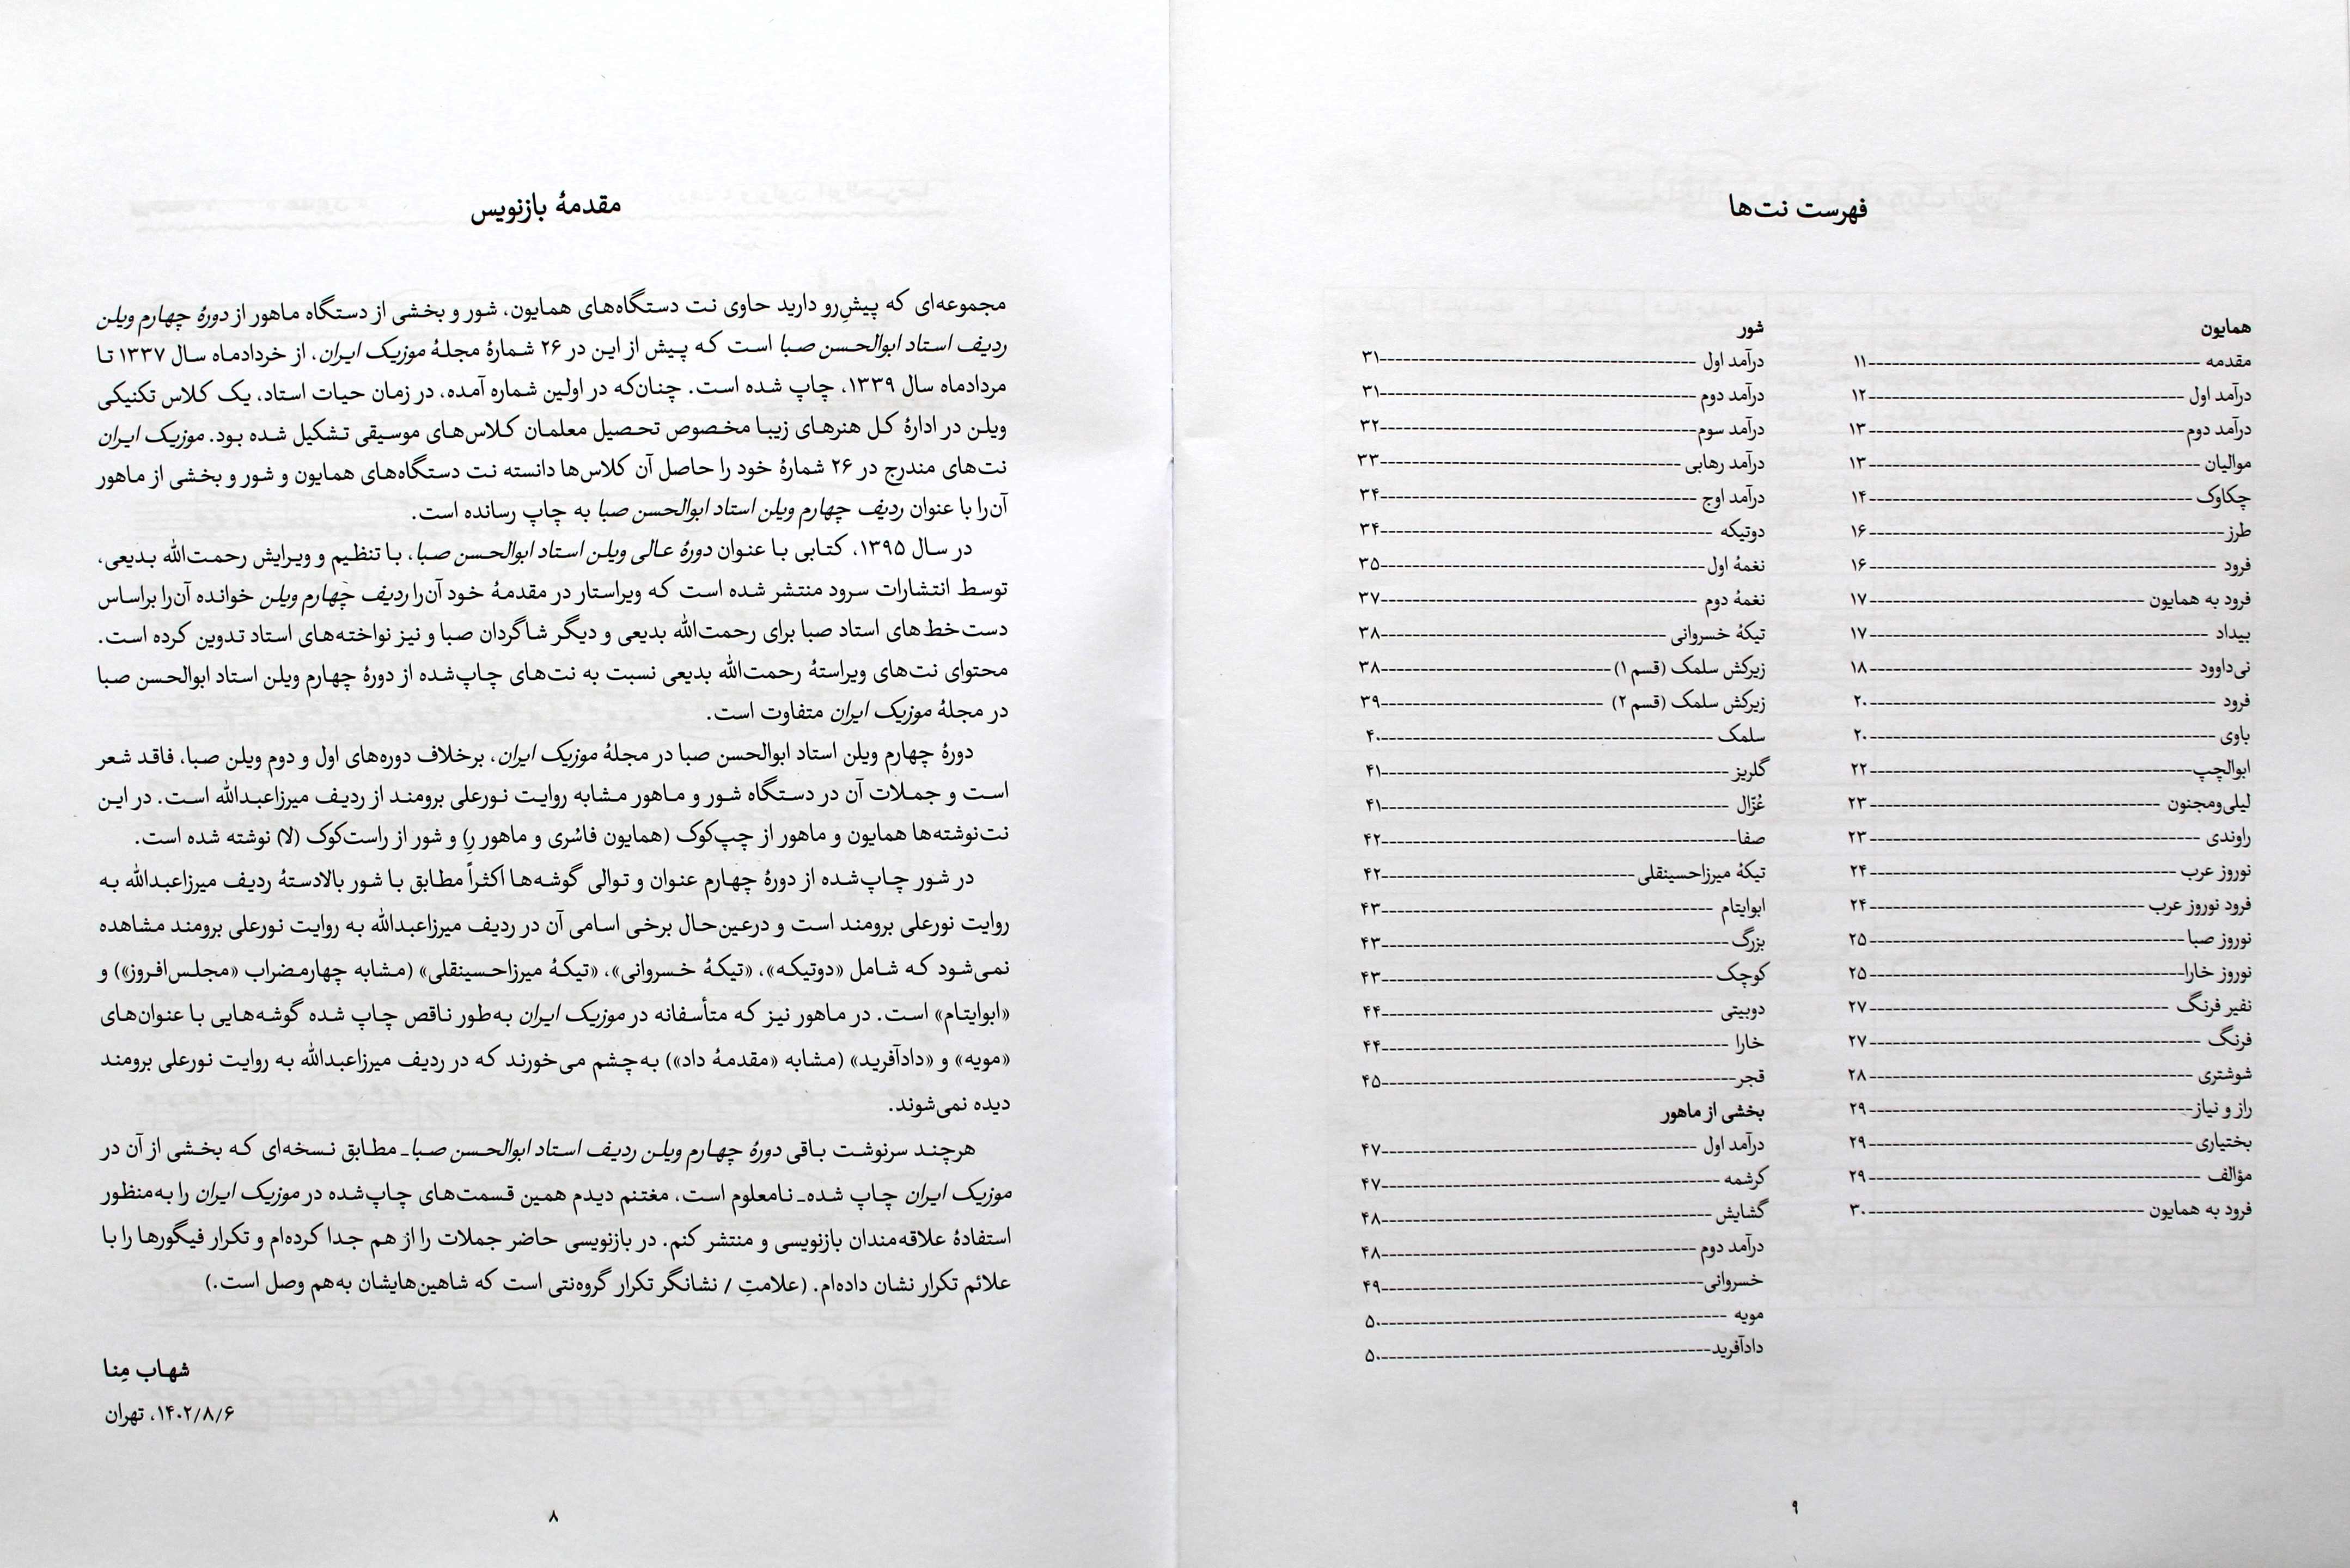 مقدمهٔ بازنویس
مجموعه‌ای که پیشِ‌رو دارید حاوی نت دستگاه‌های همایون، شور و بخشی از دستگاه ماهور از دورهٔ چهارم ویلن
ردیف استاد ابوالحسن صبا است که پیش از این در ۲۶ شمارهٔ مجلهٔ موزیک ایران، از خردادماه سال ۱۳۳۷ تا
مردادماه سال ۱۳۳۹، چاپ شده است. چنان‌که در اولین شماره آمده، در زمان حیات استاد، یک کلاس تکنیکی
ویلن در ادارهٔ کل هنرهای زیبا مخصوص تحصیل معلمان کلاس‌های موسیقی تشکیل شده بود. موزیک ایران
نت‌های مندرج در ۲۶ شمارهٔ خود را حاصل آن کلاس‌ها دانسته نت دستگاه‌های همایون و شور و بخشی از ماهور
آن‌را با عنوان ردیف چهارم ویلن استاد ابوالحسن صبا به چاپ رسانده است.
در سال ۱۳۹۵، کتابی با عنوان دورهٔ عالی ویلن استاد ابوالحسن صبا، با تنظیم و ویرایش رحمت‌الله بدیعی،
توسط انتشارات سرود منتشر شده است که ویراستار در مقدمهٔ خود آن‌را ردیف چهارم ویلن خوانده آن‌را براساس
دست‌خط‌های استاد صبا برای رحمت‌الله بدیعی و دیگر شاگردان صبا و نیز نواخته‌های استاد تدوین کرده است.
محتوای نت‌های ویراستهٔ رحمت‌الله بدیعی نسبت به نت‌های چاپ‌شده از دورهٔ چهارم ویلن استاد ابوالحسن صبا
در مجلهٔ موزیک ایران متفاوت است.
دورهٔ چهارم ویلن استاد ابوالحسن صبا در مجلهٔ موزیک ایران، برخلاف دوره‌های اول و دوم ویلن صبا، فاقد شعر
است و جملات آن در دستگاه شور و ماهور مشابه روایت نورعلی برومند از ردیف میرزاعبدالله است. در این
نت‌نوشته‌ها همایون و ماهور از چپ‌کوک (همایون فاسُری و ماهور رِ) و شور از راست‌کوک (لا) نوشته شده است.
در شور چاپ‌شده از دورهٔ چهارم عنوان و توالی گوشه‌ها اکثراً مطابق با شور بالادستهٔ ردیف میرزاعبدالله به
روایت نورعلی برومند است و درعین‌حال برخی اسامی آن در ردیف میرزاعبدالله به روایت نورعلی برومند مشاهده
نمی‌شود که شامل «دوتیکه»، «تیکهٔ خسروانی»، «تیکهٔ میرزاحسینقلی» (مشابه چهارمضراب «مجلس‌افروز») و
«ابوایتام» است. در ماهور نیز که متأسفانه در موزیک ایران به‌طور ناقص چاپ شده گوشه‌هایی با عنوان‌های
«مویه» و «دادآفرید» (مشابه «مقدمهٔ داد») به‌چشم می‌خورند که در ردیف میرزاعبدالله به روایت نورعلی برومند
دیده نمی‌شوند.
هرچند سرنوشت باقی دورهٔ چهارم ویلن ردیف استاد ابوالحسن صبا_ مطابق نسخه‌ای که بخشی از آن در
موزیک ایران چاپ شده_ نامعلوم است، مغتنم دیدم همین قسمت‌های چاپ‌شده در موزیک ایران را به‌منظور
استفادهٔ علاقه‌مندان بازنویسی و منتشر کنم. در بازنویسی حاضر جملات را از هم جدا کرده‌ام و تکرار فیگورها را با
علائم تکرار نشان داده‌ام. (علامتِ / نشانگر تکرار گروه‌نتی است که شاهین‌هایشان به‌هم وصل است.)
شهاب مِنا
۱۴۰۲/۸/۶، تهران
۸
فهرست نت‌ها
همایون
مقدمه ---- ۱۱
درآمد اول ---- ۱۲
درآمد دوم ---- ۱۳
موالیان ---- ۱۳
چکاوک ---- ۱۴
طرز ---- ۱۶
فرود ---- ۱۶
فرود به همایون ---- ۱۷
بیداد ---- ۱۷
نی‌داوود ---- ۱۸
فرود ---- ۲۰
باوی ---- ۲۰
ابوالچپ ---- ۲۲
لیلی‌ومجنون ---- ۲۳
راوندی ---- ۲۳
نوروز عرب ---- ۲۴
فرود نوروز عرب ---- ۲۴
نوروز صبا ---- ۲۵
نوروز خارا ---- ۲۵
نفیر فرنگ ---- ۲۷
فرنگ ---- ۲۷
شوشتری ---- ۲۸
راز و نیاز ---- ۲۹
بختیاری ---- ۲۹
مؤالف ---- ۲۹
فرود به همایون ---- ۳۰
شور
درآمد اول ---- ۳۱
درآمد دوم ---- ۳۱
درآمد سوم ---- ۳۲
درآمد رهابی ---- ۳۳
درآمد اوج ---- ۳۴
دوتیکه ---- ۳۴
نغمهٔ اول ---- ۳۵
نغمهٔ دوم ---- ۳۷
تیکهٔ خسروانی ---- ۳۸
زیرکش سلمک (قسم ۱) ---- ۳۸
زیرکش سلمک (قسم ۲) ---- ۳۹
سلمک ---- ۴۰
گلریز ---- ۴۱
غُزّال ---- ۴۱
صفا ---- ۴۲
تیکهٔ میرزاحسینقلی ---- ۴۲
ابوایتام ---- ۴۳
بزرگ ---- ۴۳
کوچک ---- ۴۳
دوبیتی ---- ۴۴
خارا ---- ۴۴
قجر ---- ۴۵
بخشی از ماهور
درآمد اول ---- ۴۷
کرشمه ---- ۴۷
گشایش ---- ۴۸
درآمد دوم ---- ۴۸
خسروانی ---- ۴۹
مویه ---- ۵۰
دادآفرید ---- ۵۰
۹